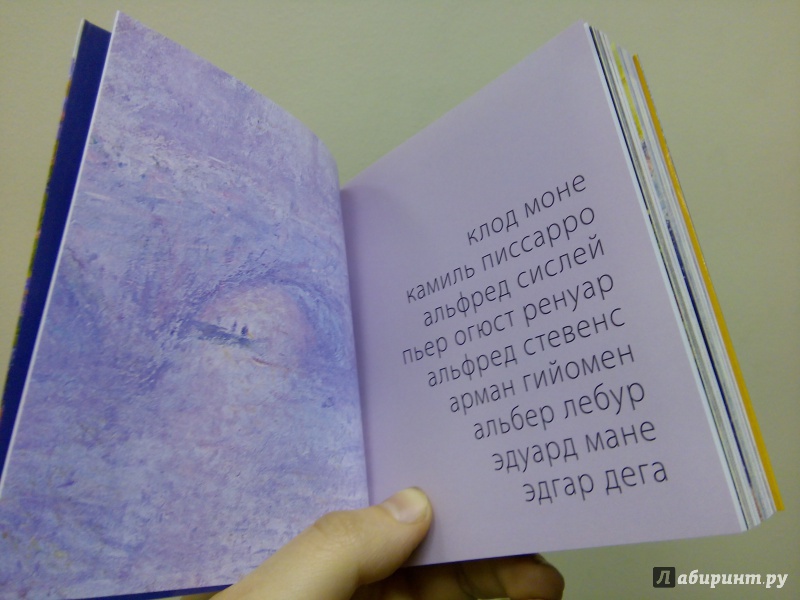 клод моне
камиль писсарро
альфред сислей
пьер огюст ренуар
альфред стевенс
арман гийомен
альбер лебур
эдуард мане
эдгар дега
Лабиринт.ру